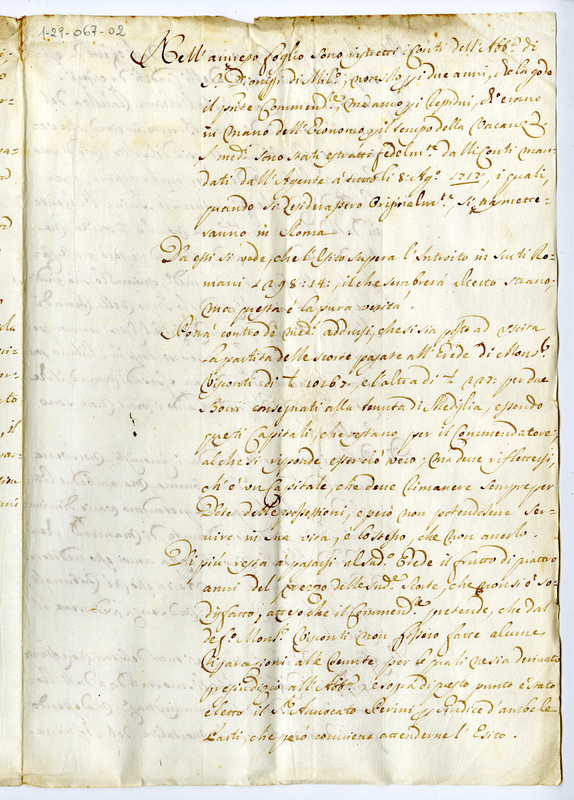 1-29-067-02
Nell'annesso foglio sono ristretti i Conti dell'Abb.ª di
S. Dionigi di Mil.º; non solo p. i due anni, che la gode
il pnte Commend.re, ma anco p. i lepidini, ch'erano
in mano dell'Economo p. il tempo della Vacanza.
I med.i sono stati estratti fedelm.te dalli Conti man-
dati dall'Agente à tutto li 8: Ag.º 1717, i quali,
quando si desiderassero Originalm.te, si trametter-
ranno in Roma.
Da essi si vede, che l'Esito supera l'Introito in scuti Ro-
mani 1298:14: il che sembrerà al certo strano,
ma questa è la pura verità.
Potrà contro de med.i addursi, che si sia posto ad uscita
la partita delle scorte pagate all'Erede di Mons.r
Visconti di £ 10167, e l'altra di £ 217: per due
Bovi consegnati alla tenuta di Mediglia, essendo
questi Capitali, che restano per il Commendatore;
al che si risponde esser ciò vero; ma deve riflettersi,
ch'è un Capitale, che deve rimanere sempre per
Dote delle possessioni, e però non potendosene ser-
vire in sua vita, è lo stesso, che non averlo.
Di più resta à pagarsi al sud.º Erede il frutto di quattro
anni del prezzo delle sud.e scorte, che non si è so-
disfatto, atteso che il Commend.re pretende, che dal
def.º Mons.r Visconti non fossero fatte alcune
riparazioni alle tenute, per le quali ne sia derivato
pregiudizio all'Abb.ª, e sopra di questo punto è stato
eletto il S.r Avvocato Perini p. Giudice d'ambe le
Parti, che però conviene attenderne l'Esito.